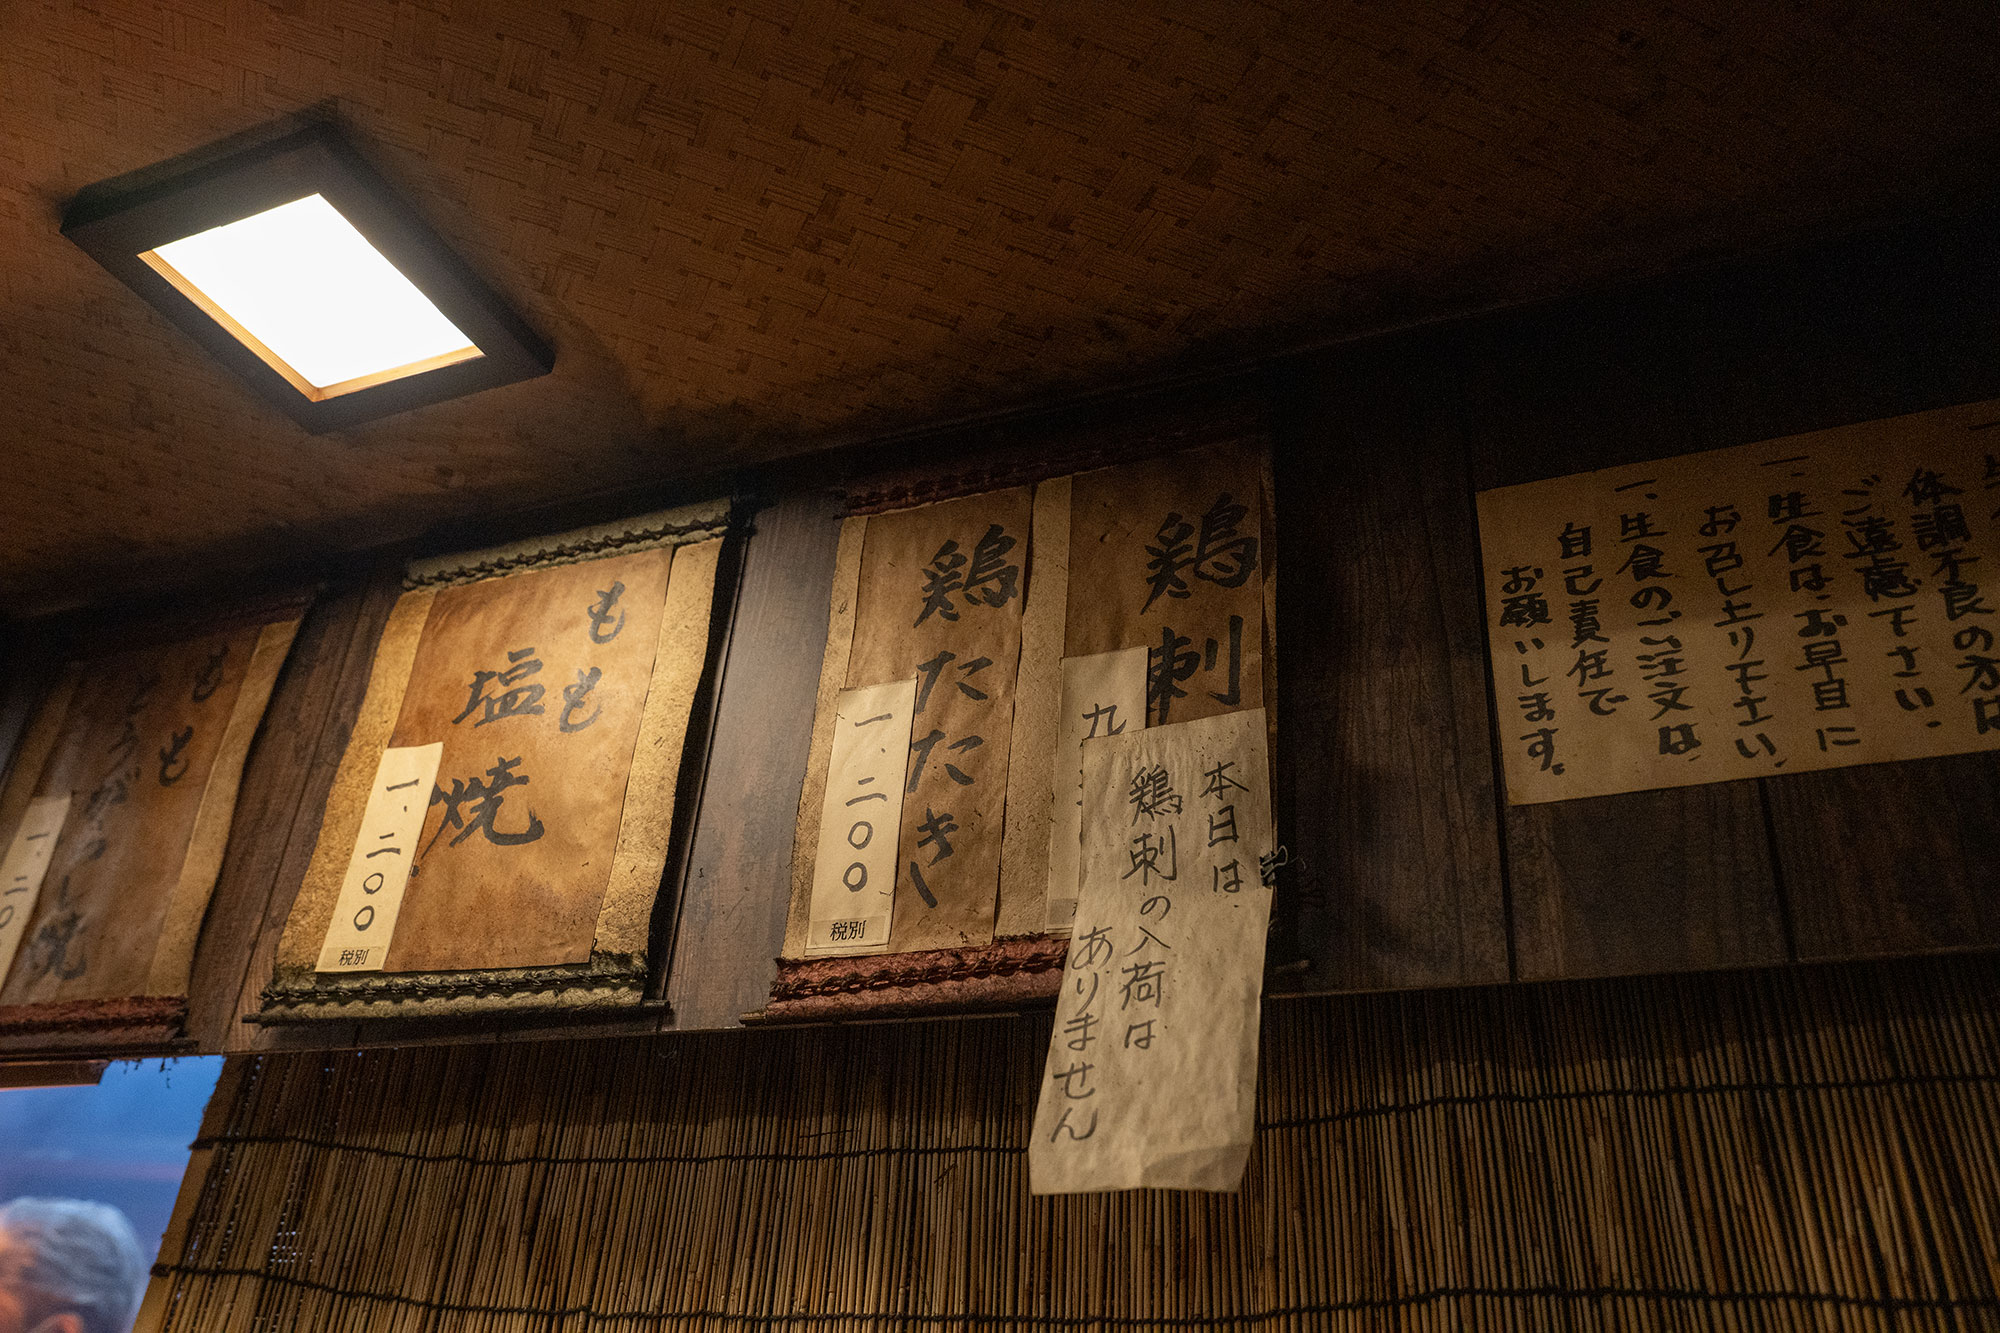 体調不良の方は
ご遠慮下さい、
一、生食は、お早目に
お召し上り下さい、
一、生食のご注文は、
自己責任で
お願いします。
鶏刺
九
本日は、
鶏刺の入荷は
ありません
鶏たたき
一、二〇〇
税別
もも
塩焼
一、二〇〇
税別
もも
とうがらし焼
一、二〇